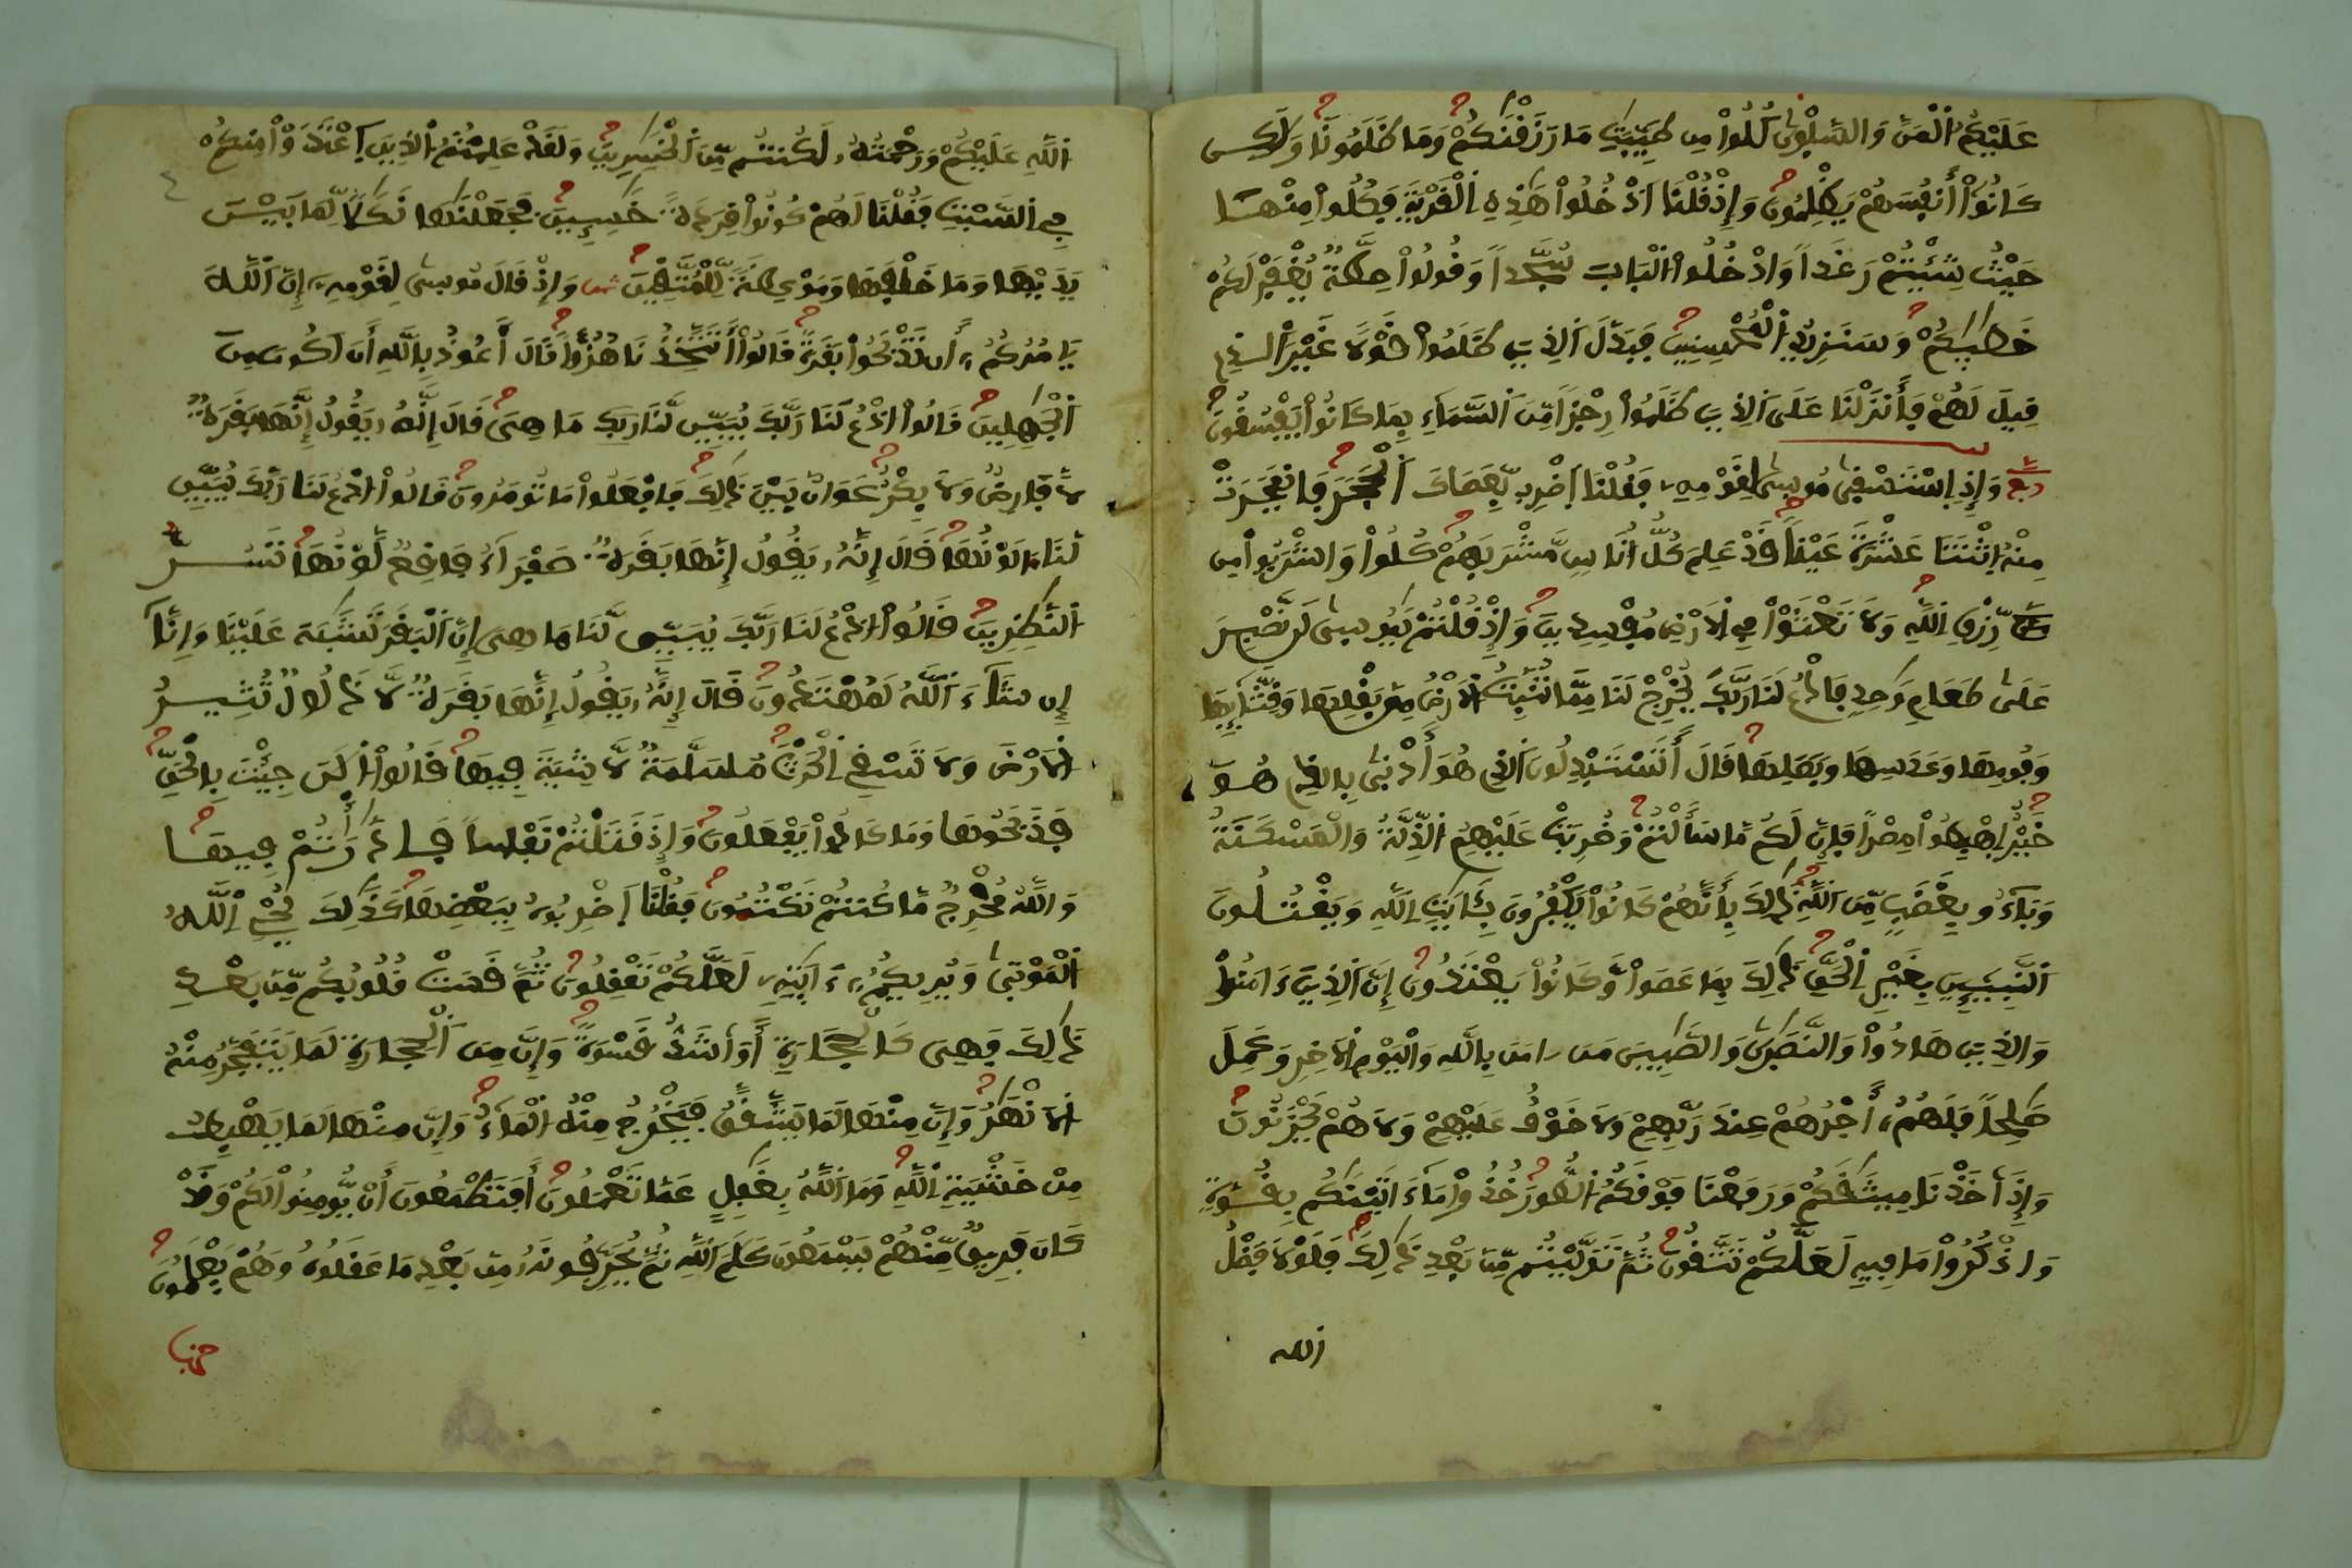 عَلَيْكُمُ الْمَنَّ وَالسَّلْوٜىٰ كُلُواْ مِن طَيِّبَٰتِ مَا رَزَقْنَٰكُمْ وَمَا ظَلَمُونَا وَلَٰكِن
كَانُوٓاْ أَنفُسَهُمْ يَظْلِمُونَ وَإِذْ قُلْنَا ادْخُلُواْ هَٰذِهِ الْقَرْيَةَ فَكُلُواْ مِنْهَا
حَيْثُ شِئْتُمْ رَغَداً وَادْخُلُواْ الْبَابَ سُجَّداً وَقُولُواْ حِطَّةٌ يُغْفَرْ لَكُمْ
خَطَٰيَٰكُمْ وَسَنَزِيدُ الْمُحْسِنِينَ فَبَدَّلَ الَّذِينَ ظَلَمُواْ قَوْلاً غَيْرَ الَّذِي
قِيلَ لَهُمْ فَأَنزَلْنَا عَلَى الَّذِينَ ظَلَمُواْ رِجْزاً مِّنَ السَّمَآءِ بِمَا كَانُواْ يَفْسُقُونَ
ربع وَإِذِ اسْتَسْقٜىٰ مُوسٜىٰ لِقَوْمِهِ فَقُلْنَا اضْرِب بِّعَصَاكَ الْحَجَرَ فَانفَجَرَتْ
مِنْهُ اثْنَتَا عَشْرَةَ عَيْناً قَدْ عَلِمَ كُلُّ أُنَاسٍ مَّشْرَبَهُمْ كُلُواْ وَاشْرَبُواْ مِن
رِّزْقِ اللَّهِ وَلاَ تَعْثَوْاْ فِي الاَرْضِ مُفْسِدِينَ وَإِذْ قُلْتُمْ يَٰمُوسٜىٰ لَن نَّصْبِرَ
عَلَىٰ طَعَامٍ وَٰحِدٍ فَادْعُ لَنَا رَبَّكَ يُخْرِجْ لَنَا مِمَّا تُنۢبِتُ الاَرْضُ مِنۢ بَقْلِهَا وَقِثَّآئِهَا
وَفُومِهَا وَعَدَسِهَا وَبَصَلِهَا قَالَ أَتَسْتَبْدِلُونَ الَّذِي هُوَ أَدْنٜىٰ بِالَّذِي هُوَ
خَيْرٌ اِهْبِطُواْ مِصْراً فَإِنَّ لَكُم مَّا سَأَلْتُمْ وَضُرِبَتْ عَلَيْهِمُ الذِّلَّةُ وَالْمَسْكَنَةُ
وَبَآءُو بِغَضَبٍ مِّنَ اللَّهِ ذَٰلِكَ بِأَنَّهُمْ كَانُواْ يَكْفُرُونَ بِـَٔايَٰتِ اللَّهِ وَيَقْتُلُونَ
النَّبِيٓـِٕينَ بِغَيْرِ الْحَقِّ ذَٰلِكَ بِمَا عَصَواْ وَّكَانُواْ يَعْتَدُونَ إِنَّ الَّذِينَ ءَامَنُواْ
وَالَّذِينَ هَادُواْ وَالنَّصَٰرٜىٰ وَالصَّٰبِينَ مَنَ ـامَنَ بِاللَّهِ وَالْيَوْمِ الاَخِرِ وَعَمِلَ
صَٰلِحاً فَلَهُمُۥٓ أَجْرُهُمْ عِندَ رَبِّهِمْ وَلاَ خَوْفٌ عَلَيْهِمْ وَلاَ هُمْ يَحْزَنُونَ
وَإِذَ اَخَذْنَا مِيثَٰقَكُمْ وَرَفَعْنَا فَوْقَكُمُ الطُّورَ خُذُواْ مَآ ءَاتَيْنَٰكُم بِقُوَّةٍ
وَاذْكُرُواْ مَا فِيهِ لَعَلَّكُمْ تَتَّقُونَ ثُمَّ تَوَلَّيْتُم مِّنۢ بَعْدِ ذَٰلِكَ فَلَوْلاَ فَضْلُ
الله
اللَّهِ عَلَيْكُمْ وَرَحْمَتُهُۥ لَكُنتُم مِّنَ الْخَٰسِرِينَ وَلَقَدْ عَلِمْتُمُ الَّذِينَ اَعْتَدَوْاْ مِنكُمْ
فِي السَّبْتِ فَقُلْنَا لَهُمْ كُونُواْ قِرَدَةً خَٰسِـِٕينَ فَجَعَلْنَٰهَا نَكَٰلاً لِّمَا بَيْنَ
يَدَيْهَا وَمَا خَلْفَهَا وَمَوْعِظَةً لِّلْمُتَّقِينَ وَإِذْ قَالَ مُوسٜىٰ لِقَوْمِهِۦٓ إِنَّ اللَّهَ
يَامُرُكُمُۥٓ أَن تَذْبَحُواْ بَقَرَةً قَالُوٓاْ أَتَتَّخِذُنَا هُزُؤاً قَالَ أَعُوذُ بِاللَّهِ أَنَ اَكُونَ مِنَ
الْجَٰهِلِينَ قَالُواْ ادْعُ لَنَا رَبَّكَ يُبَيِّن لَّنَا مَا هِيَ قَالَ إِنَّهُۥ يَقُولُ إِنَّهَا بَقَرَةٌ
لاَّ فَارِضٌ وَلاَ بِكْرٌ عَوَانٌۢ بَيْنَ ذَٰلِكَ فَافْعَلُواْ مَا تُومَرُونَ قَالُواْ ادْعُ لَنَا رَبَّكَ يُبَيِّن
لَّنَا مَا لَوْنُهَا قَالَ إِنَّهُۥ يَقُولُ إِنَّهَا بَقَرَةٌ صَفْرَآءُ فَاقِعٌ لَّوْنُهَا تَسُرُّ
النَّٰظِرِينَ قَالُواْ ادْعُ لَنَا رَبَّكَ يُبَيِّن لَّنَا مَا هِيَ إِنَّ الْبَقَرَ تَشَٰبَهَ عَلَيْنَا وَإِنَّآ
إِن شَآءَ اللَّهُ لَمُهْتَدُونَ قَالَ إِنَّهُۥ يَقُولُ إِنَّهَا بَقَرَةٌ لاَّ ذَلُولٌ تُثِيرُ
الاَرْضَ وَلاَ تَسْقِي الْحَرْثَ مُسَلَّمَةٌ لاَّ شِيَةَ فِيهَا قَالُواْ الَٰنَ جِئْتَ بِالْحَقِّ
فَذَبَحُوهَا وَمَا كَادُواْ يَفْعَلُونَ وَإِذْ قَتَلْتُمْ نَفْساً فَادَّٰرَٰءْتُمْ فِيهَا
وَاللَّهُ مُخْرِجٌ مَّا كُنتُمْ تَكْتُمُونَ فَقُلْنَا اَضْرِبُوهُ بِبَعْضِهَا كَذَٰلِكَ يُحْيِ اللَّهُ
الْمَوْتٜىٰ وَيُرِيكُمُۥٓ ءَايَٰتِهِۦ لَعَلَّكُمْ تَعْقِلُونَ ثُمَّ قَسَتْ قُلُوبُكُم مِّنۢ بَعْدِ
ذَٰلِكَ فَهِيَ كَالْحِجَارَةِ أَوَ اَشَدُّ قَسْوَةً وَإِنَّ مِنَ الْحِجَارَةِ لَمَا يَتَفَجَّرُ مِنْهُ
الاَنْهَٰرُ وَإِنَّ مِنْهَا لَمَا يَشَّقَّقُ فَيَخْرُجُ مِنْهُ الْمَآءُ وَإِنَّ مِنْهَا لَمَا يَهْبِطُ
مِنْ خَشْيَةِ اللَّهِ وَمَا اللَّهُ بِغَٰفِلٍ عَمَّا تَعْمَلُونَ أَفَتَطْمَعُونَ أَنْ يُّومِنُواْ لَكُمْ وَقَدْ
كَانَ فَرِيقٌ مِّنْهُمْ يَسْمَعُونَ كَلَٰمَ اللَّهِ ثُمَّ يُحَرِّفُونَهُۥ مِنۢ بَعْدِ مَا عَقَلُوهُ وَهُمْ يَعْلَمُونَ